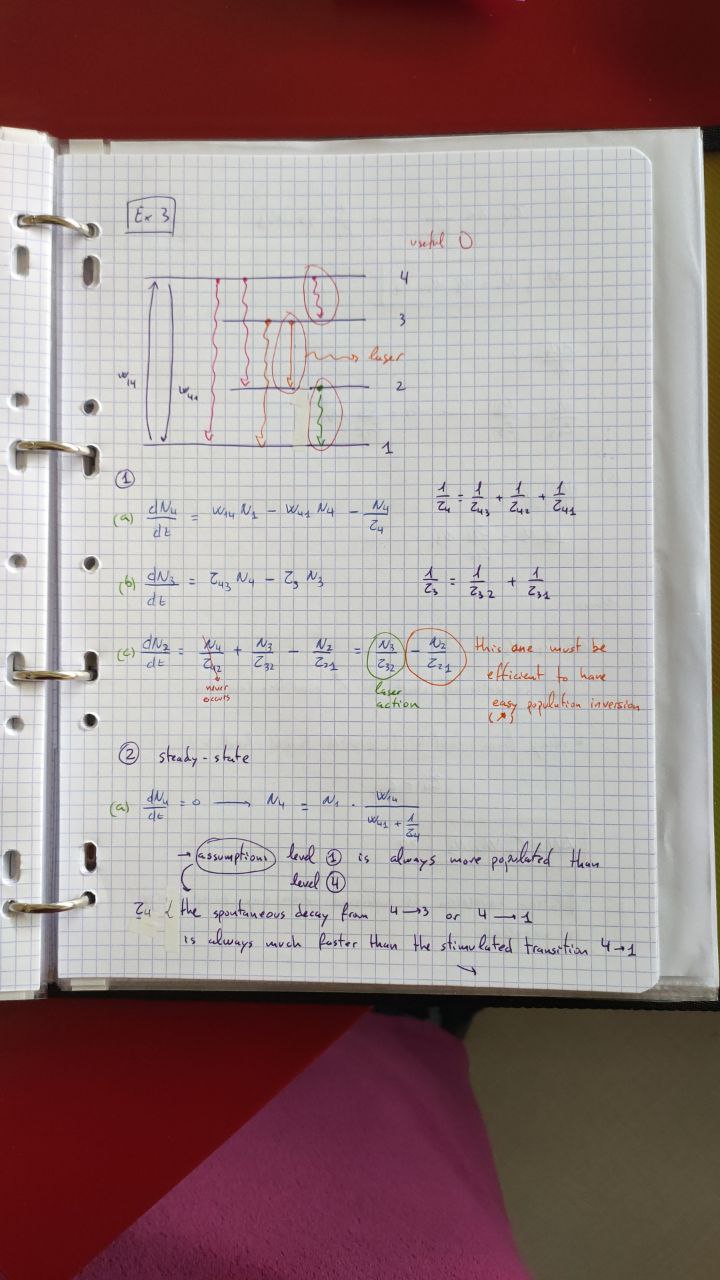 Ex 3
useful O
4
3
laser
W14
W41
2
1
①
(a) dN4/dt = W14 N1 - W41 N4 - N4/τ4    1/τ4 = 1/τ43 + 1/τ42 + 1/τ41
(b) dN3/dt = τ43 N4 - τ3 N3    1/τ3 = 1/τ32 + 1/τ31
(c) dN2/dt = N4/τ42 + N3/τ32 - N2/τ21 = N3/τ32 - N2/τ21    this one must be
efficient to have
never
occurs
laser
action
easy population inversion
(↗)
② steady-state
(a) dN4/dt = 0 → N4 = N1 · W14/(W41 + 1/τ4)
→ assumptions level ① is always more populated than
level ④
τ4 the spontaneous decay from 4→3 or 4→1
is always much faster than the stimulated transition 4→1